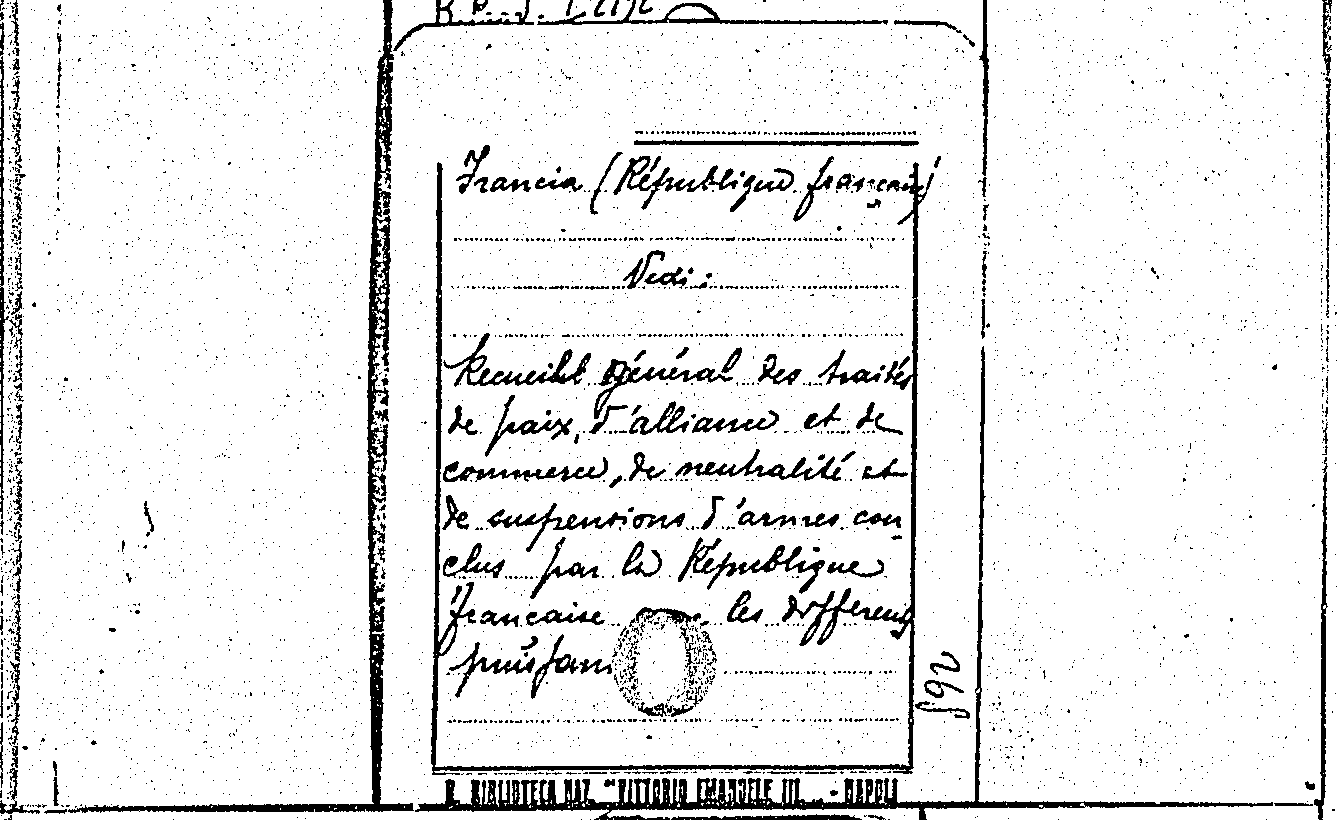 Francia (République française)
Vedi:
Recueil général des traités
de paix, d'alliance et de
commerce, de neutralité et
de suspensions d'armes con-
clus par la République
française les différents
puissan
892
R. BIBLIOTECA NAZ. "VITTORIO EMANUELE III" - NAPOLI